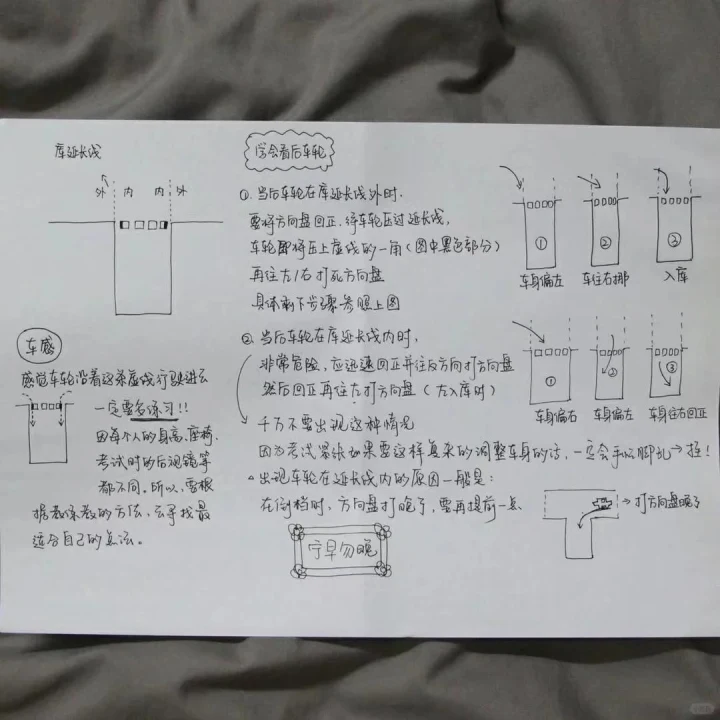 库延长线
外 内 内 外
车感
感觉车轮沿着这条虚线行驶进去
一定要多练习!!
因每个人的身高,座椅,
考试时的后视镜等
都不同,所以,要根
据教练教的方法,去寻找最
适合自己的点位。
学会看后车轮
①.当后车轮在库延长线外时,
要将方向盘回正,待车轮压过延长线,
车轮即将压上虚线的一角(图中黑色部分)
再往左/右打死方向盘
具体剩下步骤参照上图
②.当后车轮在库延长线内时,
非常危险,应迅速回正并往反方向打方向盘
然后回正再往左打方向盘(左入库时)
千万不要出现这种情况
因为考试紧张如果要这样复杂的调整车身的话,一定会手忙脚乱→挂!
出现车轮在延长线内的原因一般是:
在倒档时,方向盘打晚了,要再提前一点
宁早勿晚
① ② ③
车身偏左 车往右挪 入库
① ② ③
车身偏右 车身偏左 车身往右回正
→打方向盘晚了